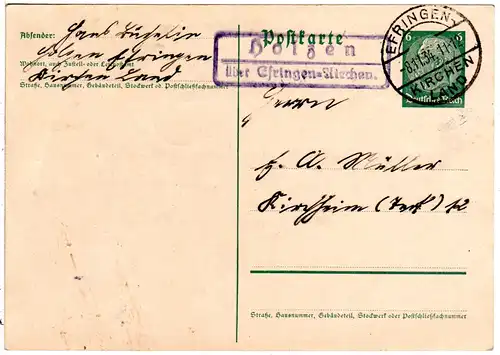 Absender: Hans Büchelin
Holzen Efringen
Wohnort, auch Zustell- oder Leitpostamt
Kirchen Land
Straße, Hausnummer, Gebäudeteil, Stockwerk od. Postschließfachnummer
Postkarte
Holzen
über Efringen-Kirchen.
EFRINGEN-
KIRCHEN
LAND
6 6
Deutsches Reich
Herrn
E. A. Müller
Kirchheim (Teck)
Straße, Hausnummer, Gebäudeteil, Stockwerk oder Postschließfachnummer